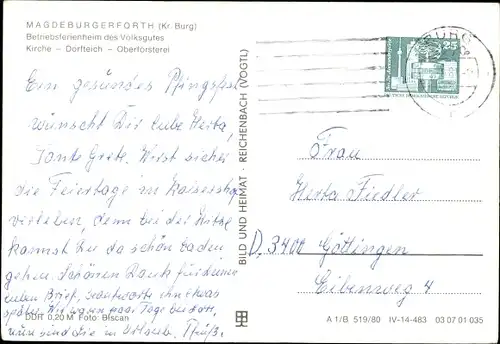 MAGDEBURGERFORTH (Kr. Burg)
Betriebsferienheim des Volksgutes
Kirche – Dorfteich – Oberförsterei
Ein gesundes Pfingstfest
wünscht Dir liebe Herta,
Tante Grete. Wirst sicher
die Feiertage in
verleben, denn bei der Hitze
kannst Du da schön baden
gehen. Schönen Dank für deinen
lieben Brief, beantworte ihn etwas
später. Wir waren paar Tage dort,
nun sind die in Urlaub. Grüße.
DDR 0,20 M Foto: Biscan
BILD UND HEIMAT · REICHENBACH (VOGTL)
BURG
25
Frau
Herta Fiedler
D. 3400 Göttingen
Eibenweg 4
A 1/B 519/80 IV-14-483 03 07 01 035